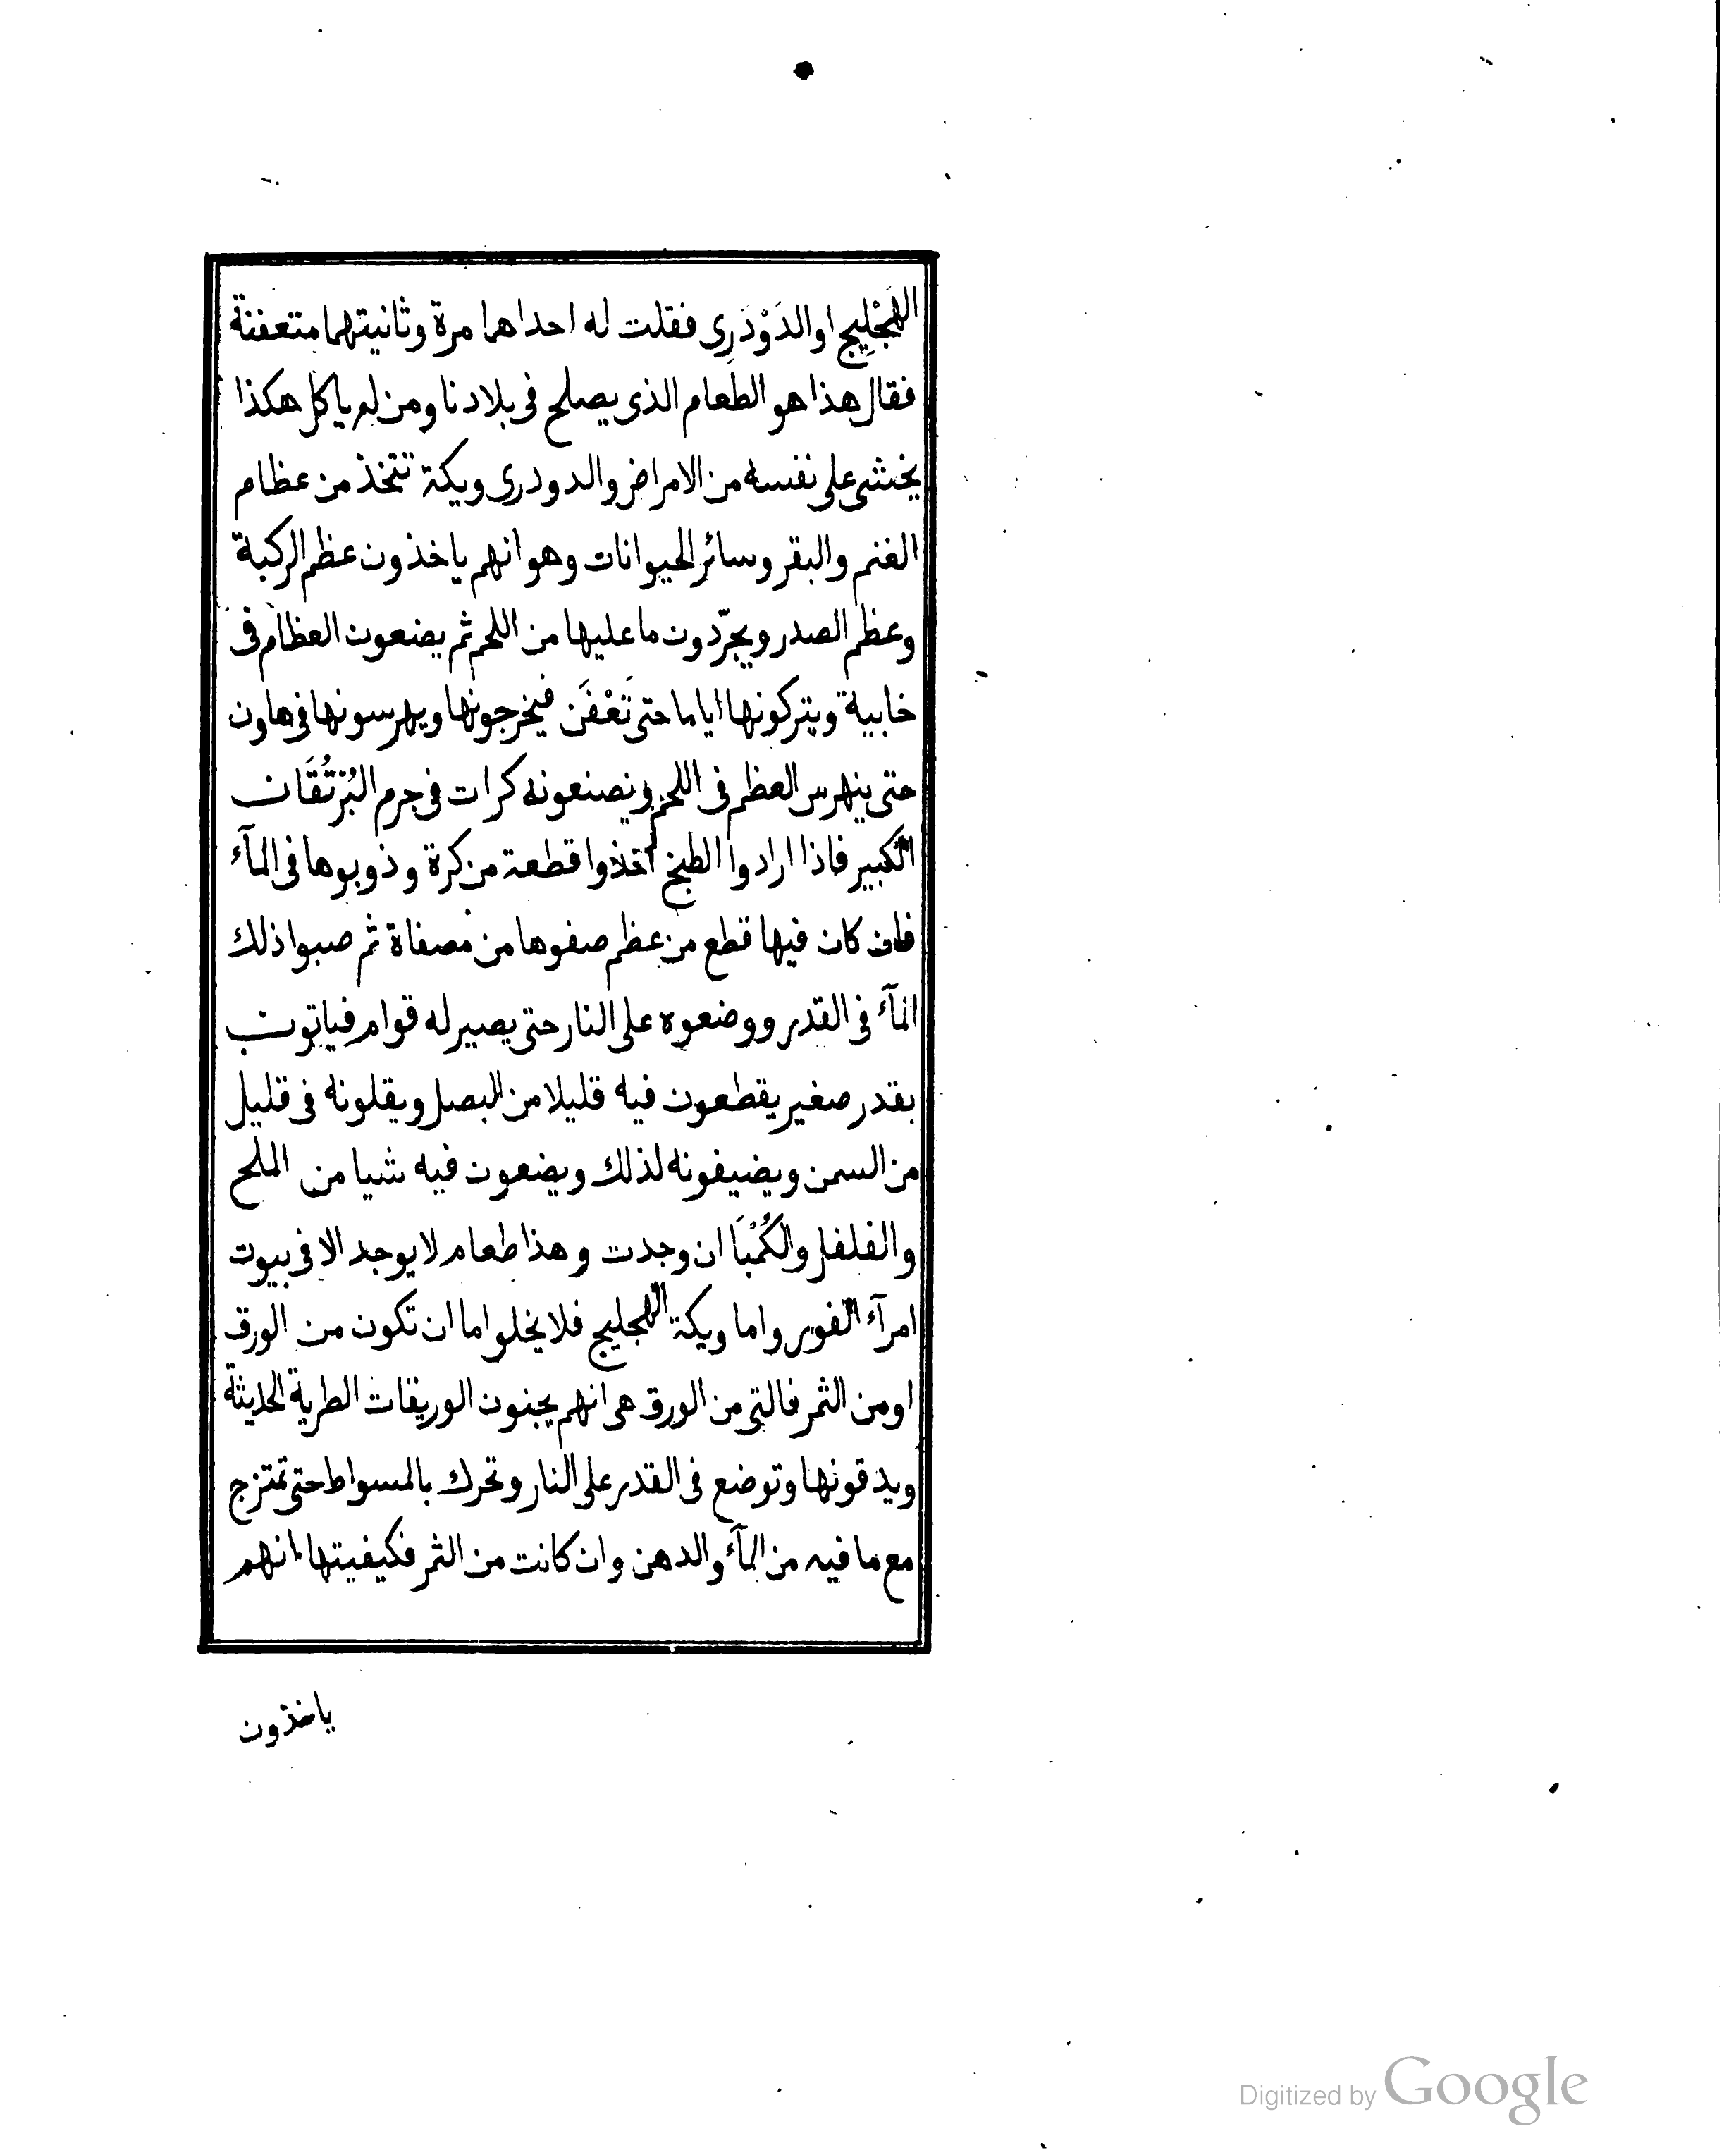 الهَجْلِيج او الدَوْدَرِى فقلت له احداهما مرة وثانيتهما متعفنة
فقال هذا هو الطعام الذى يصلح فى بلادنا ومن لم ياكل هكذا
يخشى على نفسه من الامراض والدودرى ويكة تتخذ من عظام
الغنم والبقر وسائر الحيوانات وهو انهم ياخذون عظم الركبة
وعظم الصدر ويجرّدون ما عليها من اللحم ثم يضعون العظام فى
خابية ويتركونها اياما حتى تَعْفَن فيخرجونها ويهرسونها فى هاون
حتى ينهرس العظم فى اللحم ويصنعونه كرات فى جرم البُرْتُقَان
الكبير فاذا ارادوا الطبخ اخذوا قطعة من كرة وذوبوها فى المآء
فان كان فيها قطع من عظم صفوها من مصفاة ثم صبوا ذلك
المآء فى القدر ووضعوه على النار حتى يصير له قوام فياتون
بقدر صغير يقطعون فيه قليلا من البصل ويقلونه فى قليل
من السمن ويضيفونه لذلك ويضعون فيه شيا من الملح
والفلفل والكُمْبَا ان وجدت وهذا طعام لا يوجد الا فى بيوت
امرآء الفور واما ويكة الهجليج فلا يخلوا اما ان تكون من الورق
او من الثمر فالتى من الورق هى انهم يجنون الوريقات الطرية الحديثة
ويدقونها وتوضع فى القدر على النار وتحرك بالمسواط حتى تمتزج
مع ما فيه من المآء والدهن وان كانت من الثمر فكيفيتها انهم
ياخذون
Digitized by Google